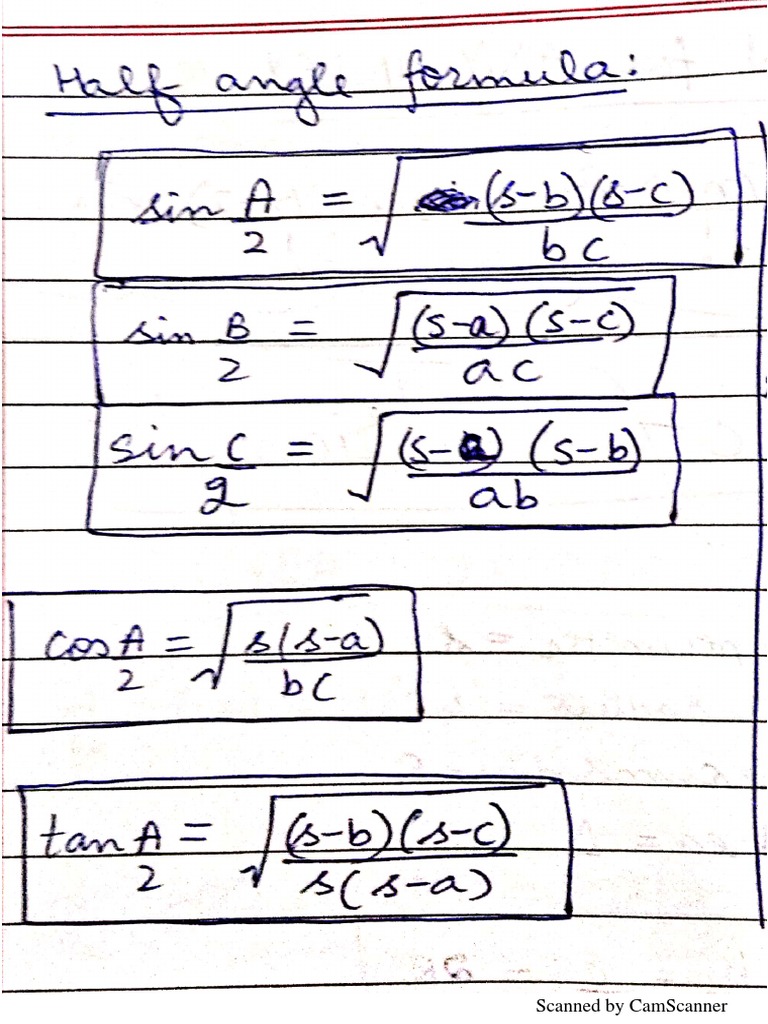 Half angle formula:
sin A/2 = √((s-b)(s-c)/bc)
sin B/2 = √((s-a)(s-c)/ac)
sin C/2 = √((s-a)(s-b)/ab)
cos A/2 = √(s(s-a)/bc)
tan A/2 = √((s-b)(s-c)/s(s-a))
Scanned by CamScanner